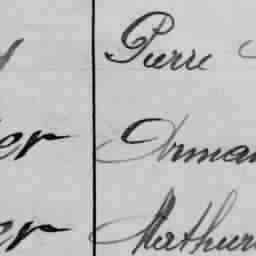 Pierre
er Arman
er Mathur